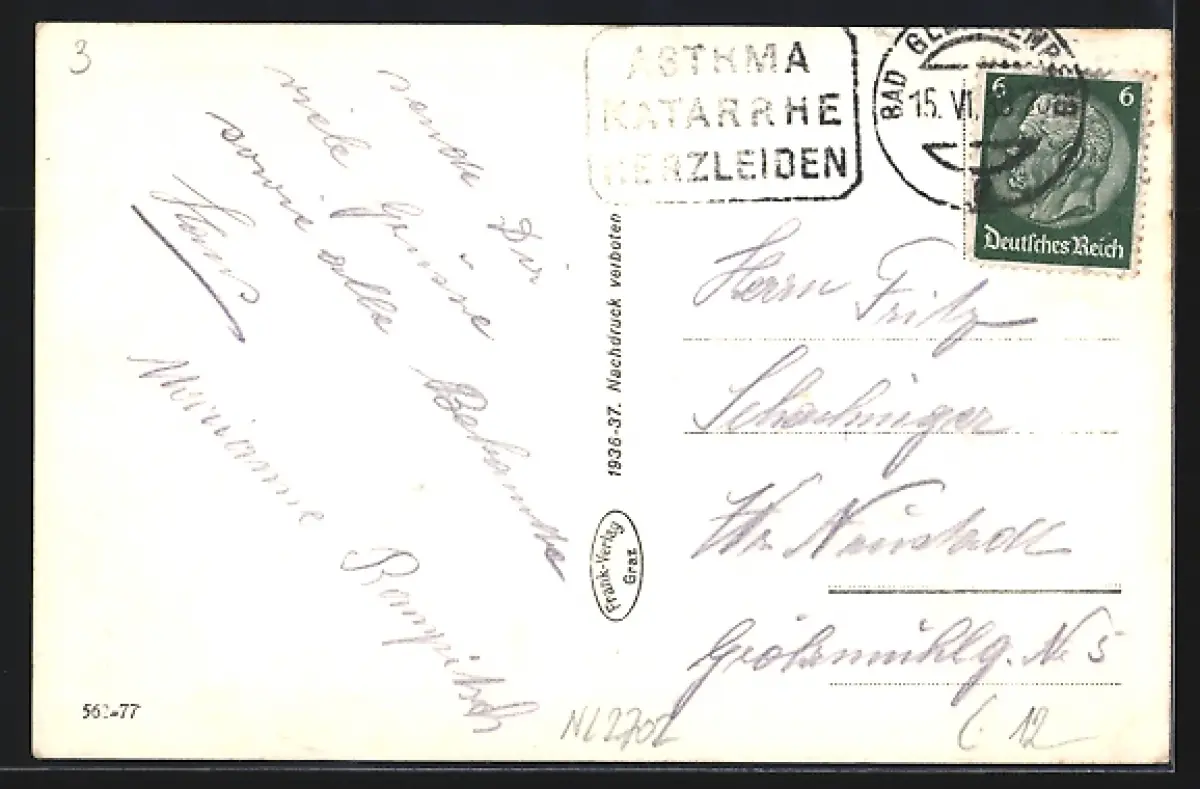 3
ASTHMA
KATARRHE
HERZLEIDEN
BAD
15. VI.
6 6
Deutsches Reich
sende Dir
viele Grüsse
sowie alle Bekannte
Hans
Marianne
1936-37. Nachdruck verboten
Frank-Verlag
Graz
Herrn Fritz
Schachinger
Wr. Neustadt
Nr 5
-77
NL2702
12